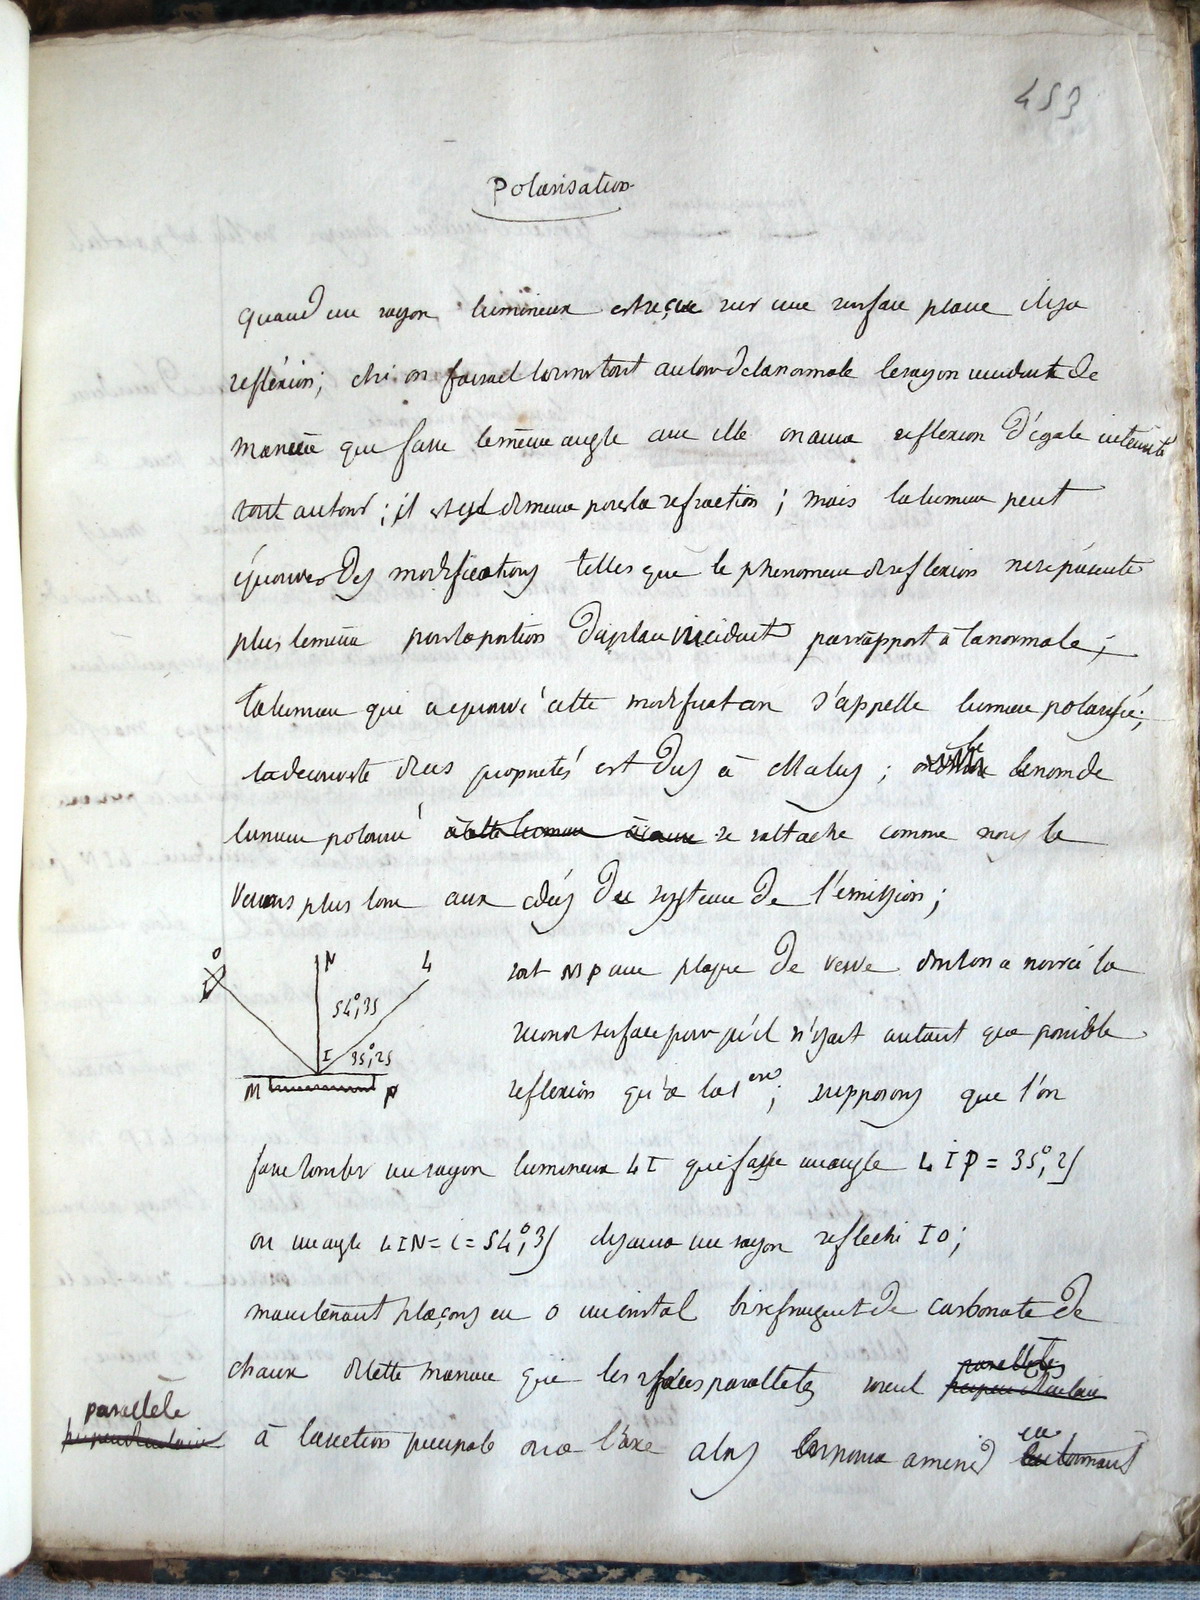 453
Polarisation
quand un rayon lumineux est reçue sur une surface plane il y a
reflexion; et si on faisait tourner tout autour de la normale le rayon incident de
maniere que fasse le même angle avec elle on aura reflexion d'égale intensité
tout autour; il est de meme pour la refraction; mais la lumiere peut
éprouver des modifications telles que le phenomene de reflexion ne se présente
plus le même pour la position du plan incident par rapport à la normale;
la lumiere qui a eprouvé cette modification s'appelle lumiere polarisée;
la decouverte de ces proprietés est dus à Malus; le nom de
lumiere polarisé à cette lumiere à cause se rattache comme nous le
verrons plus loin aux idées du systeme de l'emission;
O N L
54°,35
I 35°,25
M P
soit MP une plaque de verre dont on a noirci la
seconde surface pour qu'il n'y ait autant que possible
reflexion qu'a la 1ere; supposons que l'on
fasse tomber un rayon lumineux LI qui fasse un angle LIP = 35°,25
ou un angle LIN = i = 54°,35 il y aura un rayon reflechi IO;
maintenant plaçons en O un cristal birefringent de carbonate de
chaux de cette maniere que les faces paralleles soient perpendiculaire paralleles
parallèle perpendiculaire
à la section principale ou a l'axe alors amener en tournant